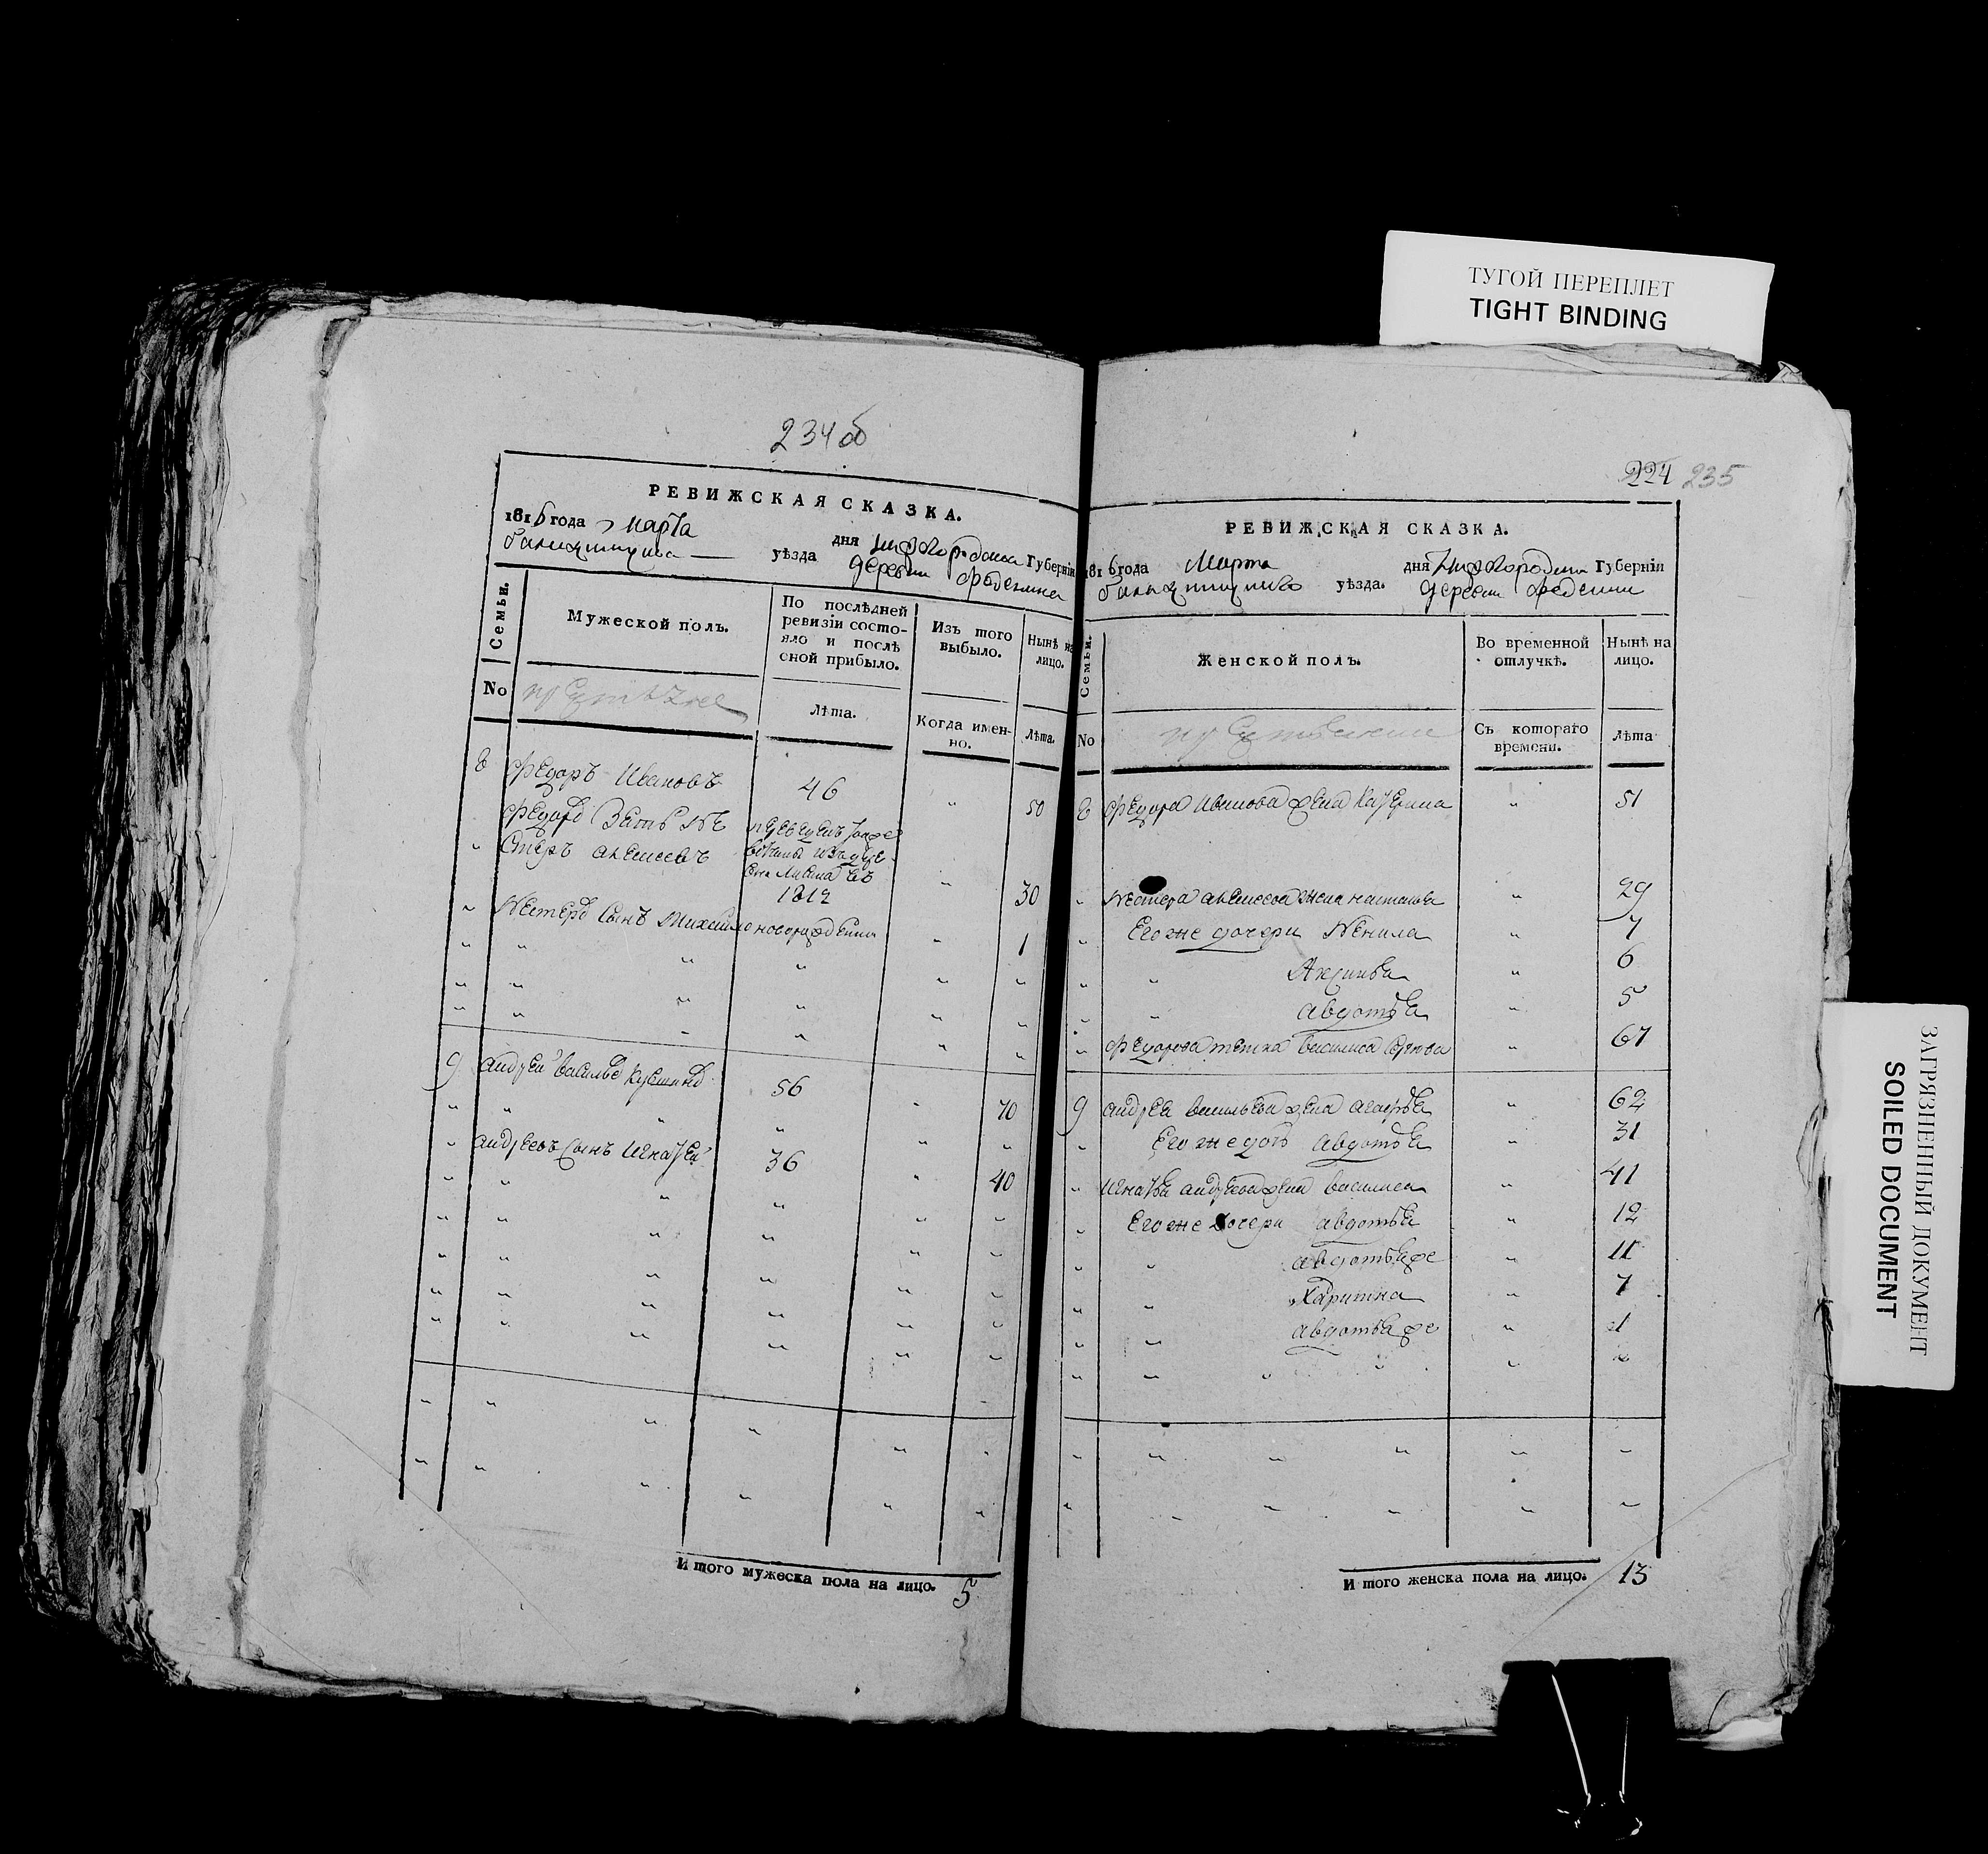 ТУГОЙ ПЕРЕПЛЕТ
TIGHT BINDING
234 об
РЕВИЖСКАЯ СКАЗКА.
1816 года марта дня Губерніи
уѣзда деревни
Семьи.
Мужеской полъ.
По послѣдней ревизіи состояло и послѣ оной прибыло.
Изъ того выбыло.
Нынѣ на лицо.
No
Лѣта.
Когда именно.
Лѣта.
8 Федоръ Ивановъ 46 " 50
Федоръ Зять
1812 " 30
Нестеръ сынъ Михайло новорожденъ " 1
9 Андрей Васильевъ 56 " 70
Андреевъ сынъ Игнатей 36 " 40
И того мужеска пола на лицо. 5
224 235
РЕВИЖСКАЯ СКАЗКА.
1816 года Марта дня Губерніи
уѣзда. деревни
Семьи.
Женской полъ.
Во временной отлучкѣ.
Нынѣ на лицо.
No
Съ котораго времени.
Лѣта
8 Федора Иванова жена Катерина " 51
" Нестера Алексеева жена Наталья " 29
" Его же дочери Ненила " 7
" " Аксинья " 6
" " Авдотья " 5
" Федорова тетка Василиса " 67
9 Андрея Васильева жена Агафья " 62
" Его же дочь Авдотья " 31
" Игнатья Андреева жена Василиса " 41
" Его же дочери Авдотья " 12
" " Авдотья же " 11
" " Харитина " 7
" " Авдотья же " 1
И того женска пола на лицо. 13
ЗАГРЯЗНЕННЫЙ ДОКУМЕНТ
SOILED DOCUMENT